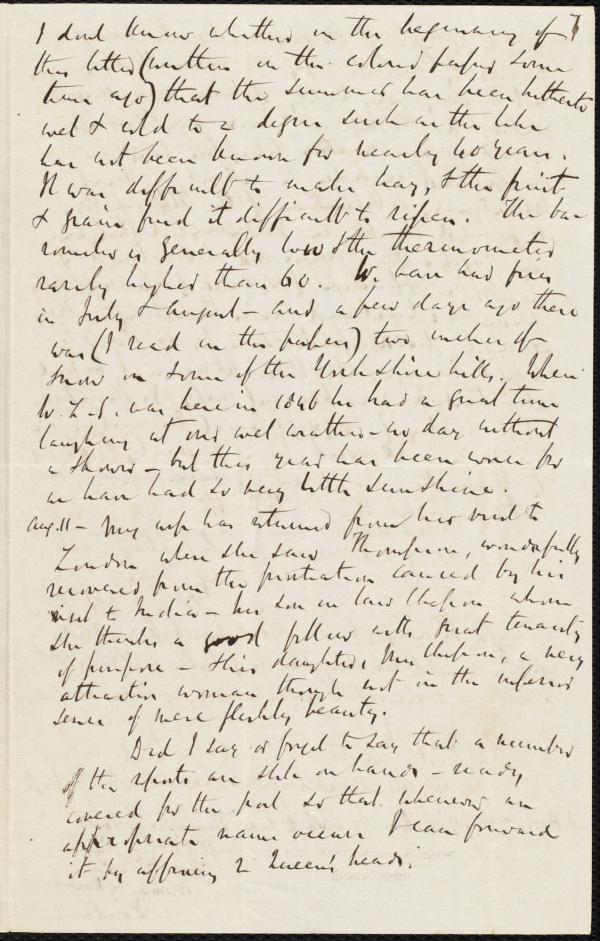 I dont know whether in the beginning of 7
this letter (written in the colored paper some
time ago) that the summer has been hitherto
wet & cold to a degree such as the like
has not been known for nearly 40 years.
It was difficult to make hay, & the fruit
& grain find it difficult to ripen. The ba-
rometer is generally low & the thermometer
rarely higher than 60. We have had fires
in July & August - and a few days ago there
was (I read in the papers) two inches of
snow on some of the Yorkshire hills. When
W.L.G. was here in 1846 he had a great time
laughing at our wet weather - no day without
a shower - but this year has been worse for
we have had so very little sunshine.
Aug. 11 - My wife has returned from her visit to
London when she saw Thompson, wonderfully
recovered from the prostration caused by his
visit to India - his son in law Chesson whom
she thinks a good fellow with great tenacity
of purpose - & his daughter, Mrs Chesson, a very
attractive woman though not in the inferior
sense of mere fleshly beauty.
Did I say or forget to say that a number
of the reports are still on hands - ready
covered for the post so that whenever an
appropriate name occurs I can forward
it by affixing 2 Queen's heads.